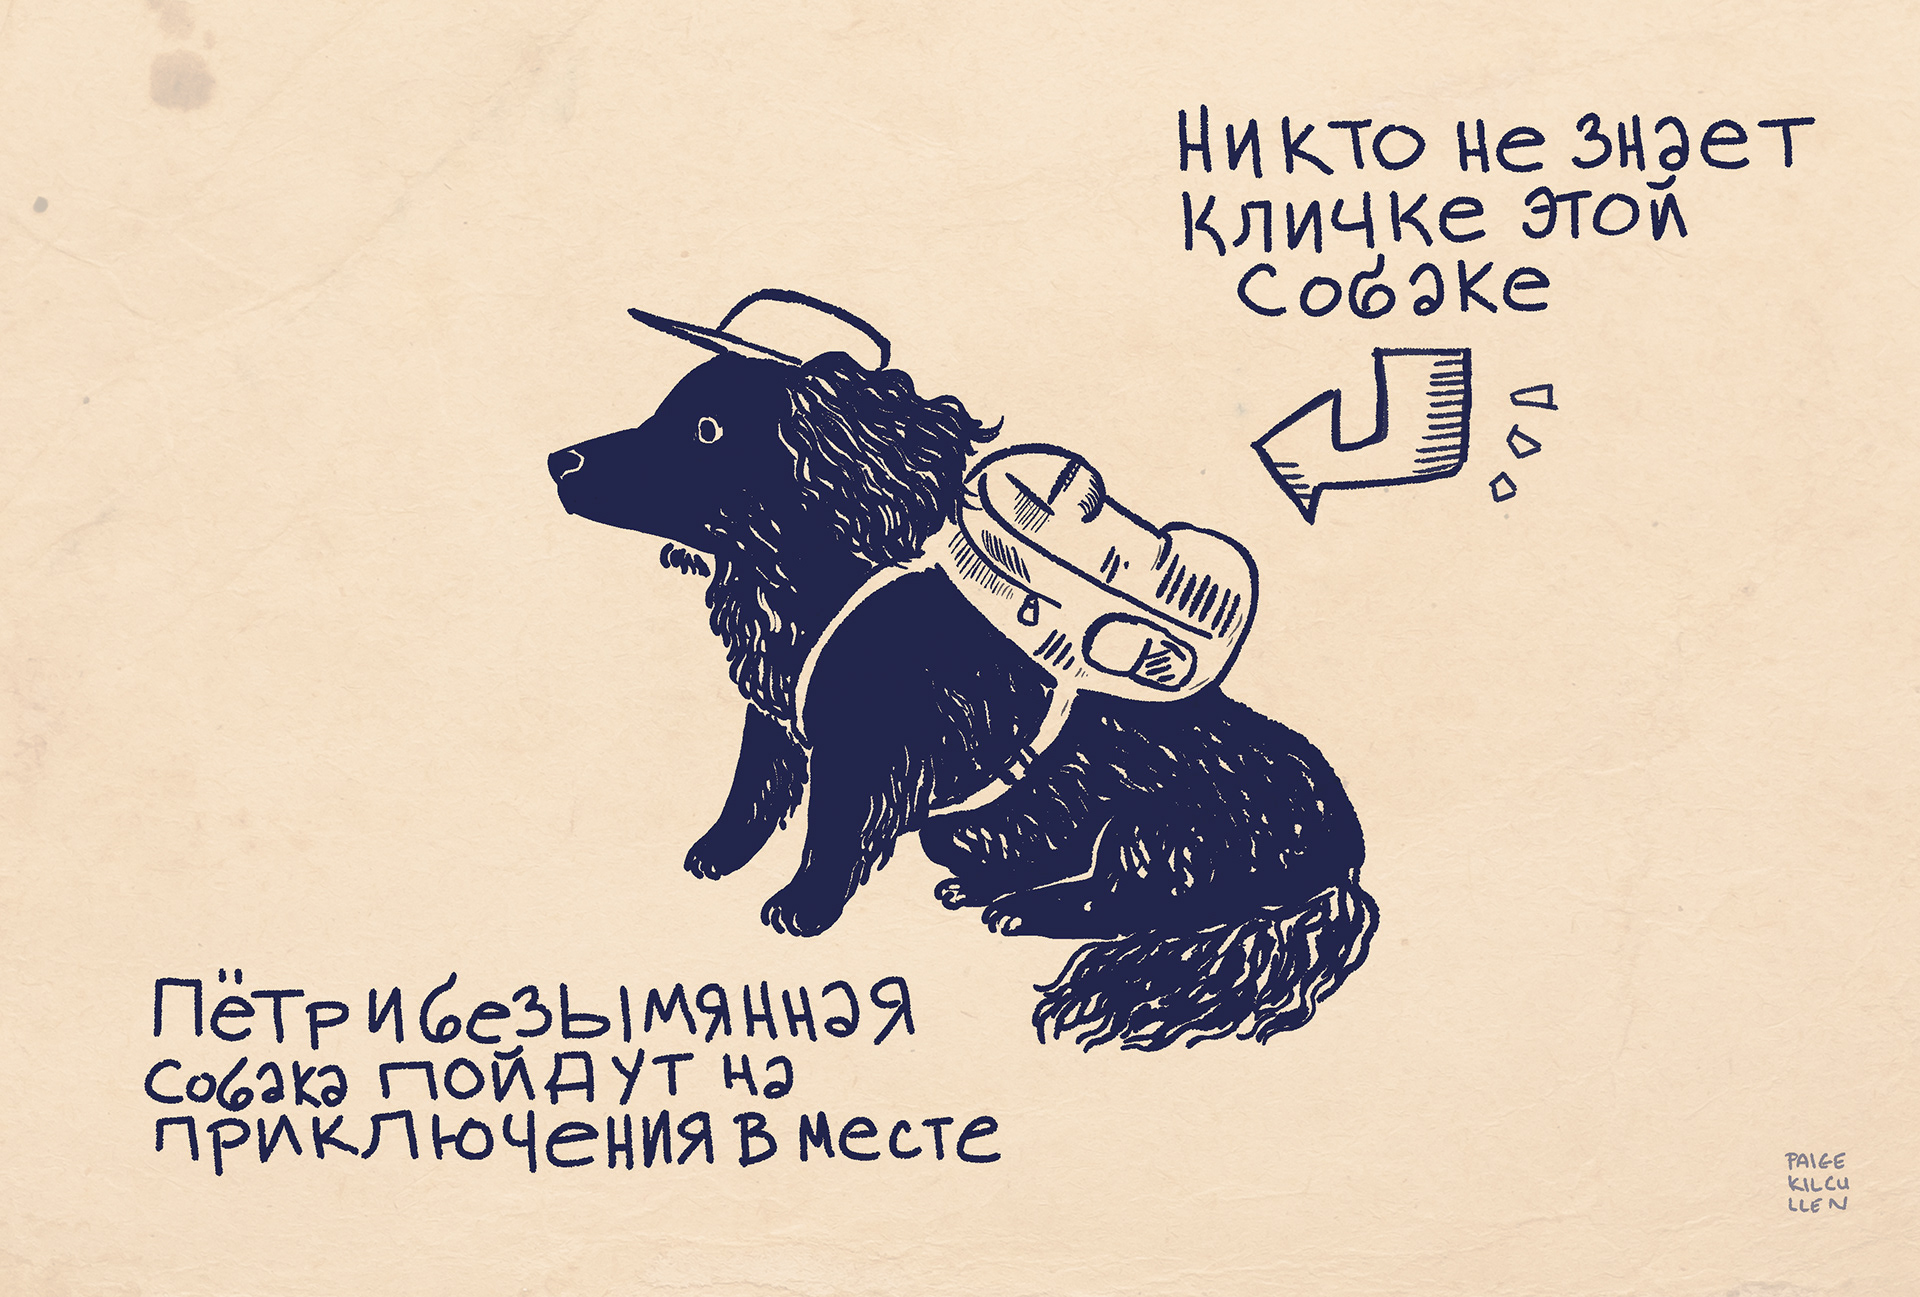 Никто не знает
кличке этой
собаке
Пётр и безымянная
собака пойдут на
приключения в месте
PAIGE
KILCU
LLEN